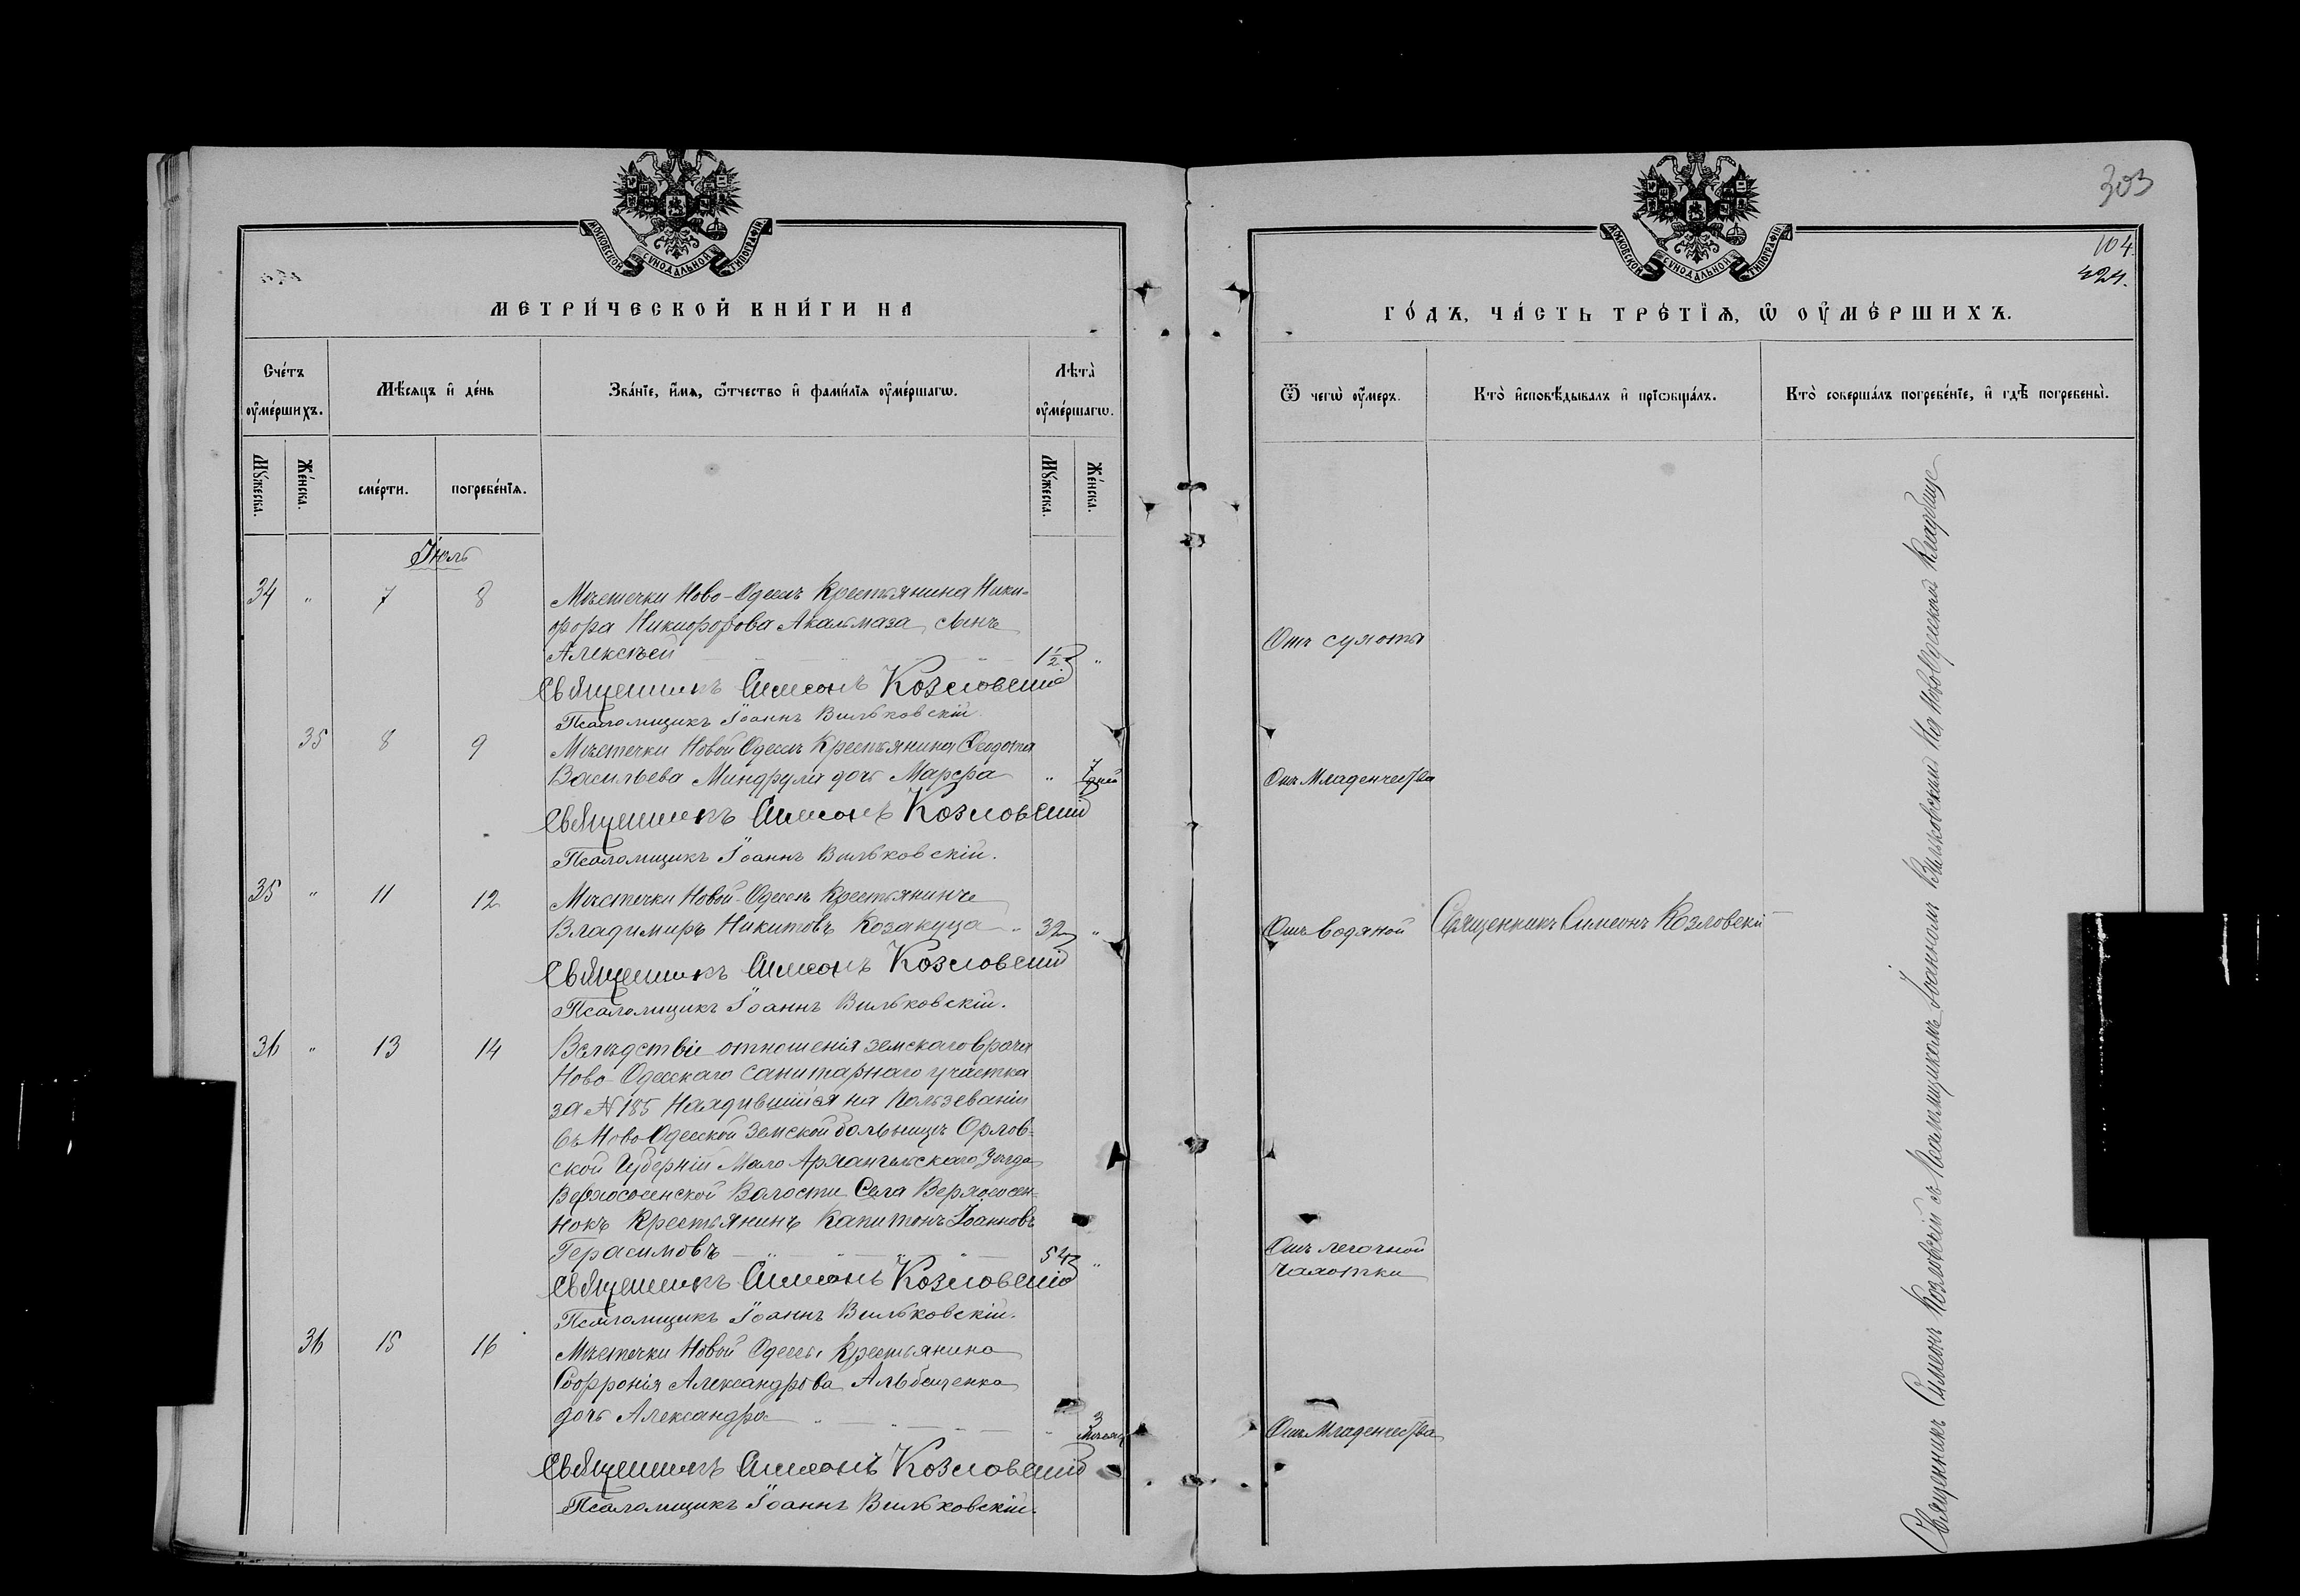 303
104.
424.
МОСКОВСКОЙ СѴНОДАЛЬНОЙ ТИПОГРАФІИ.
МЕТРИ́ЧЕСКОЙ КНИ́ГИ НА
Сче́тъ оу҆ме́ршихъ.
Мѣ́сяцъ и҆ де́нь
Зва́нїе, и҆́мѧ, ѻ҆́тчество и҆ фами́лїѧ оу҆ме́ршагѡ.
Лѣ́та оу҆ме́ршагѡ.
Мꙋ́жеска.
Же́нска.
сме́рти.
погребе́нїѧ.
Мꙋ́жеска.
Же́нска.
Іюль
34 " 7 8 Мѣстечки Ново-Одессъ Крестьянина Ники-
фора Никифорова Акальмаза, сынъ
Алексѣй 1½ "
Священникъ Симеонъ Козловскій
Псаломщикъ Іоаннъ Вильковскій.
35 8 9 Мѣстечки Новой Одессъ Крестьянина Ѳеодота
Васильева Миндрула дочь Марѳа " 7 дней
Священникъ Симеонъ Козловскій
Псаломщикъ Іоаннъ Вильковскій.
35 " 11 12 Мѣстечки Новой-Одессъ Крестьянинъ
Владимиръ Никитовъ Козакуца " 32 "
Священникъ Симеонъ Козловскій
Псаломщикъ Іоаннъ Вильковскій.
36 " 13 14 Вслѣдствіе отношенія земскаго врача
Ново-Одесскаго санитарнаго участка
за № 185 Находившійся на пользованіи
въ Ново Одесской Земской больницѣ Орлов-
ской Губерніи Мало Архангельскаго Уѣзда
Верхососенской Волости Села Верхососен-
нокъ Крестьянинъ Капитонъ Іоанновъ
Герасимовъ 54 "
Священникъ Симеонъ Козловскій
Псаломщикъ Іоаннъ Вильковскій.
36 15 16 Мѣстечки Новой Одессы Крестьянина
Софронія Александрова Альбещенко
дочь Александра " 3 мѣсяц
Священникъ Симеонъ Козловскій
Псаломщикъ Іоаннъ Вильковскій.
МОСКОВСКОЙ СѴНОДАЛЬНОЙ ТИПОГРАФІИ.
ГО́ДЪ, ЧА́СТЬ ТРЕ́ТЇѦ, Ѡ҆ ОУ҆МЕ́РШИХЪ.
Ѿ чегѡ̀ оу҆́меръ.
Кто̀ и҆сповѣ́дывалъ и҆ прїѡбща́лъ.
Кто̀ соверша́лъ погребе́нїе, и҆ гдѣ̀ погребены̀.
Отъ сухоты
Отъ Младенчества
Отъ водяной Священникъ Симеонъ Козловскій
Отъ легочной
чахотки
Отъ Младенчества
Священникъ Симеонъ Козловскій съ Псаломщикомъ Іоанномъ Вильковскимъ На Новоодесскомъ Кладбище